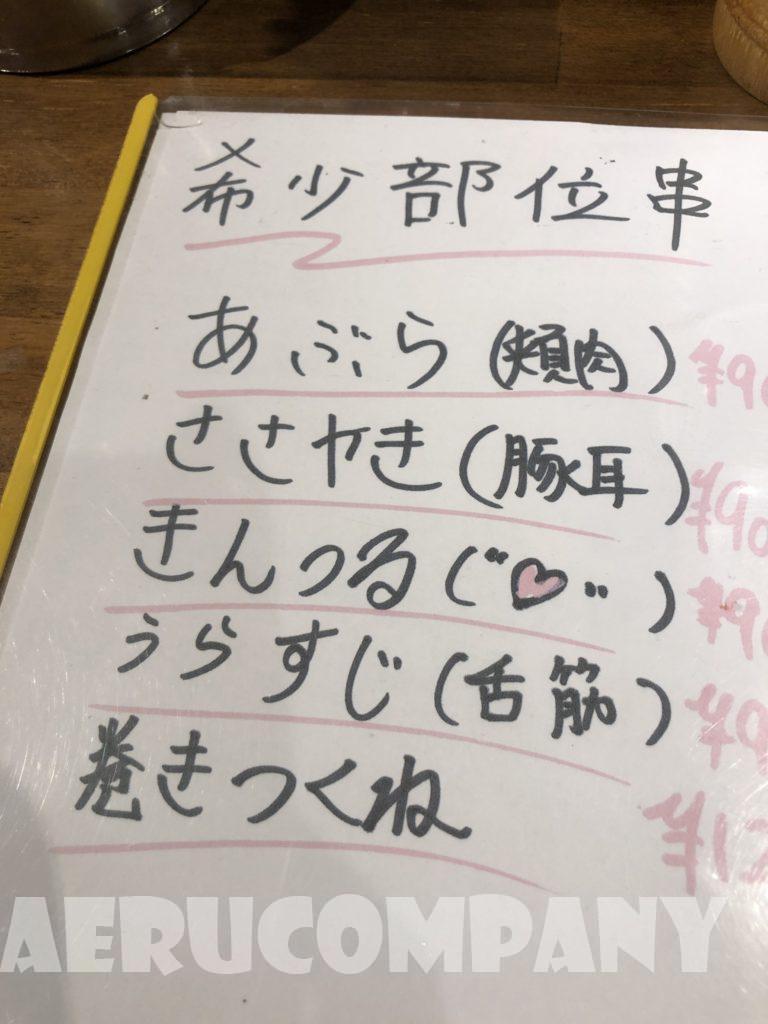 希少部位串
あぶら(頬肉) ¥90
ささやき(豚耳) ¥90
きんつる("♡")
うらすじ(舌筋)
巻きつくね
AERUCOMPANY